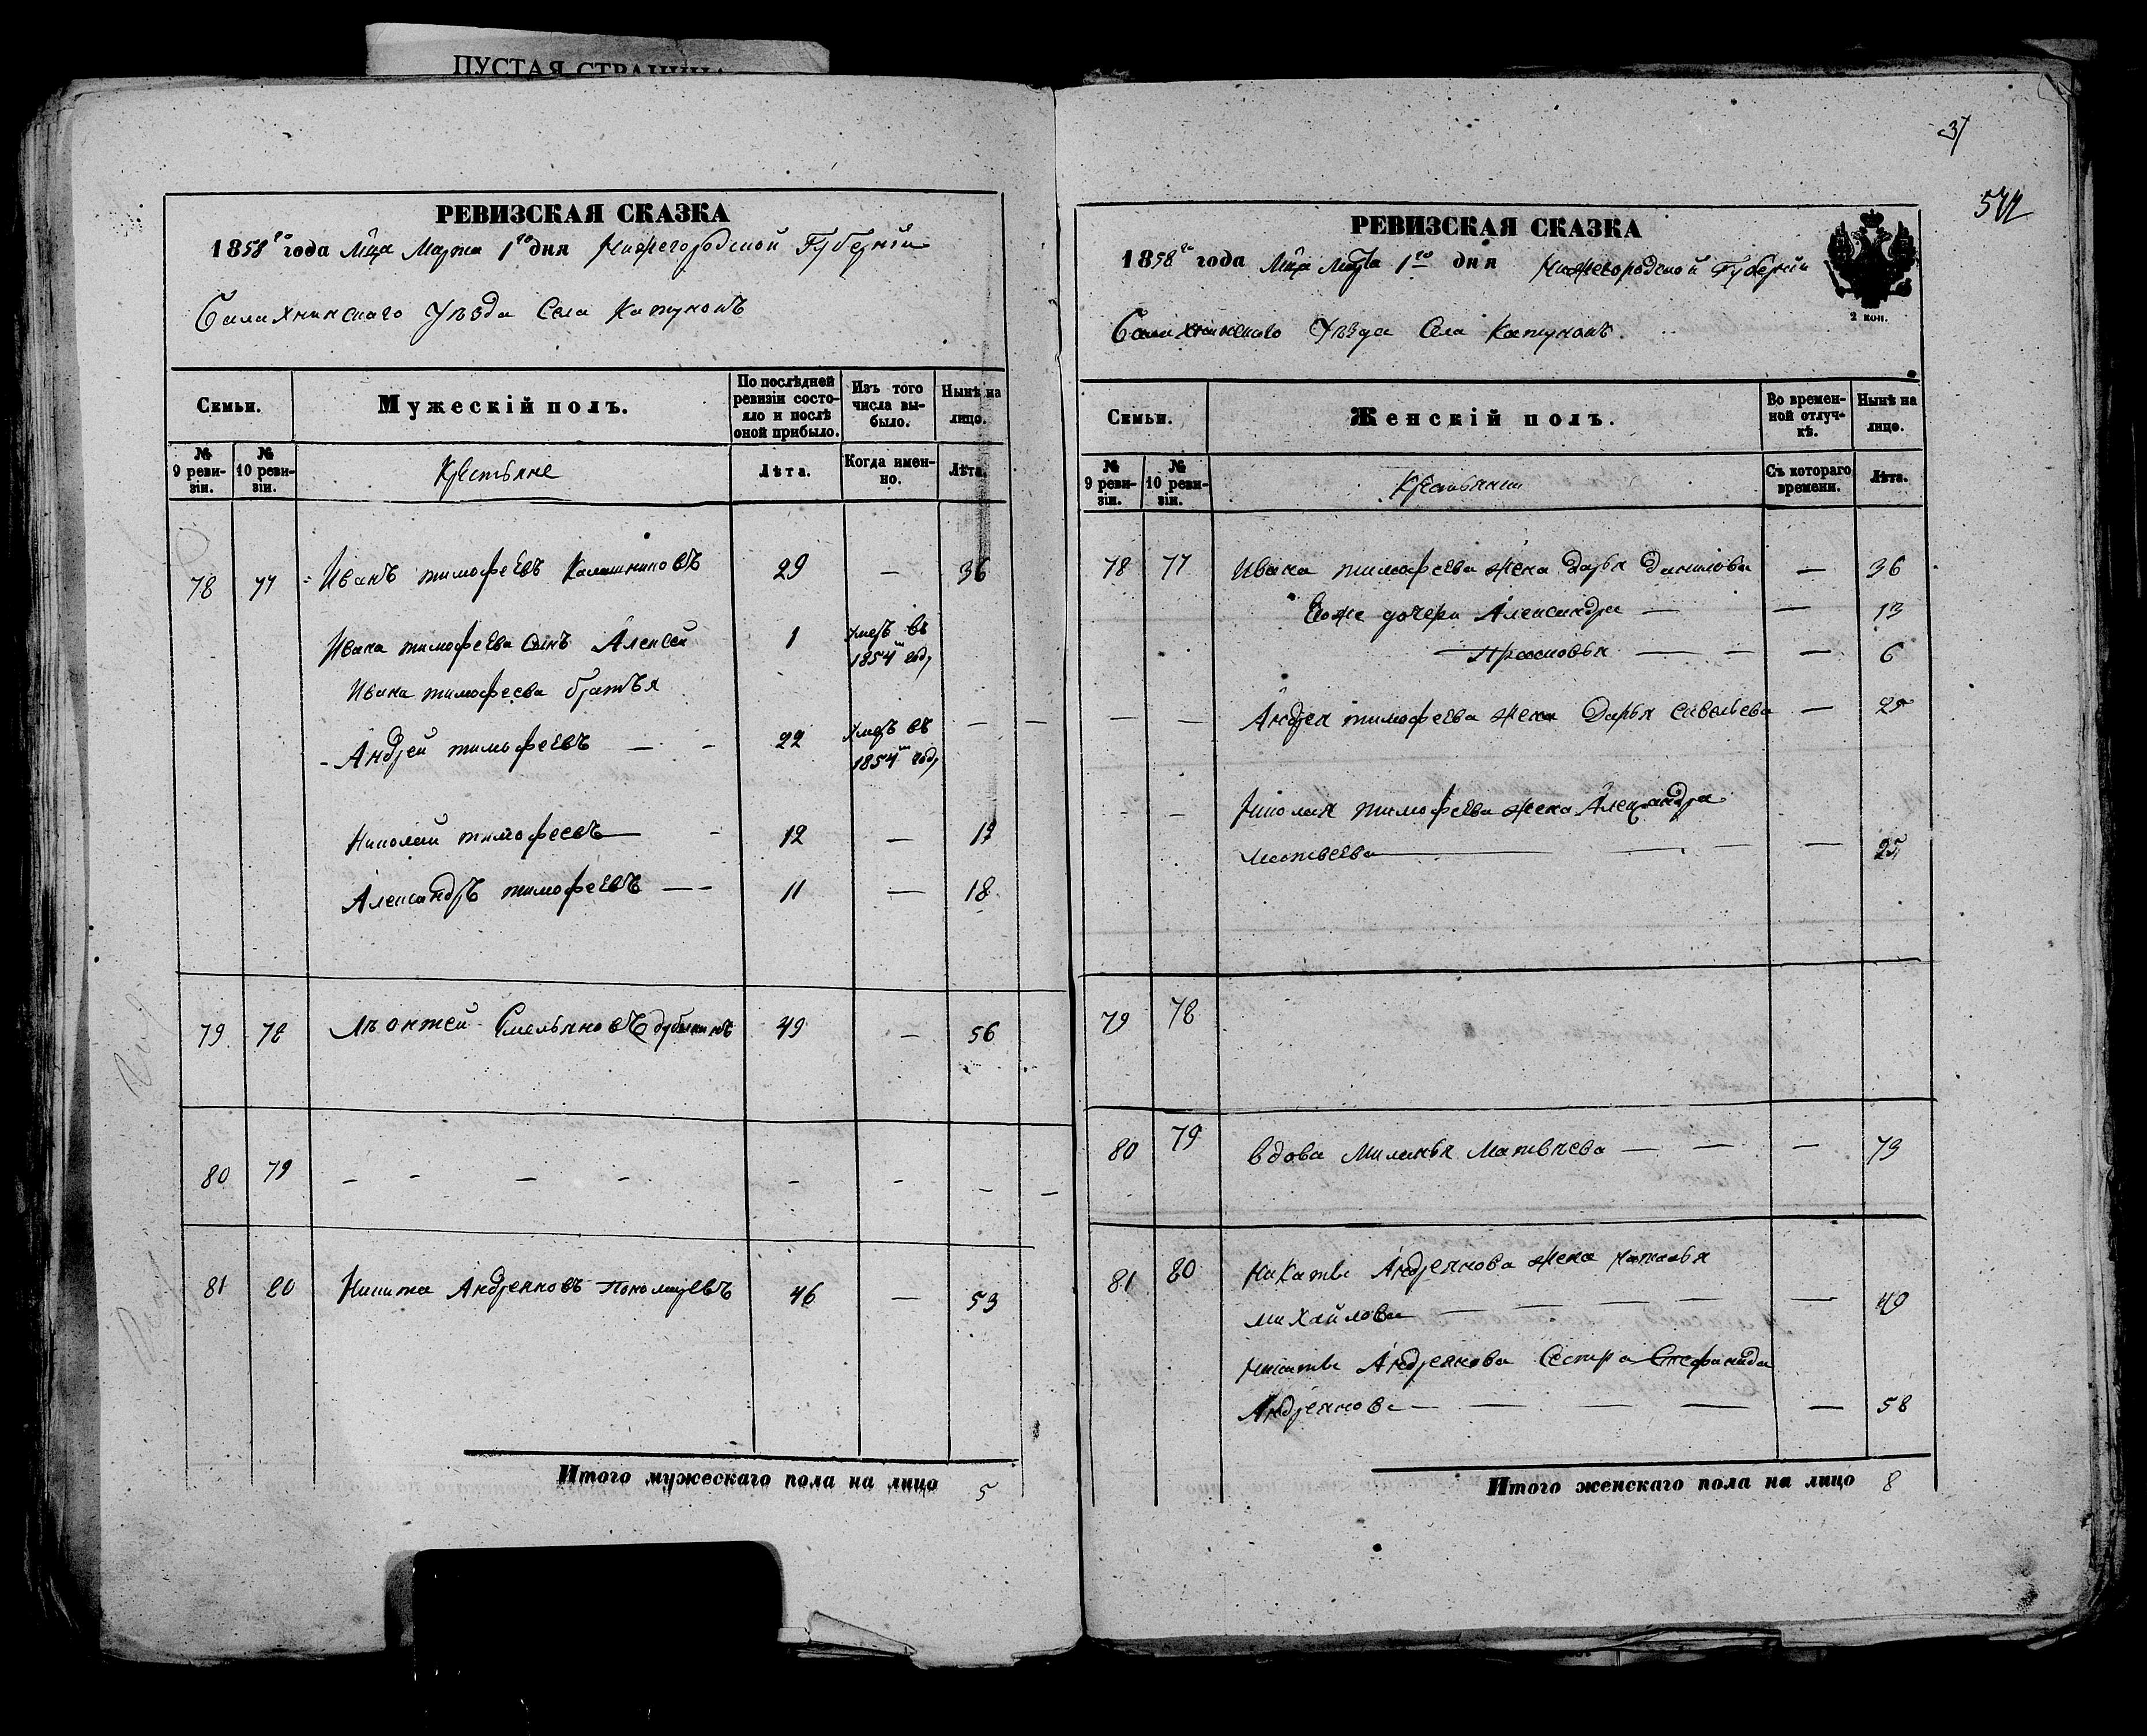 ПУСТАЯ СТРАНИЦА
РЕВИЗСКАЯ СКАЗКА
1858го года Мца Марта 1го дня Нижегородской Губерніи
Балахнинскаго Уѣзда Села Катунокъ
Семьи.
Мужескій полъ.
По послѣдней ревизіи состояло и послѣ оной прибыло.
Изъ того числа выбыло.
Нынѣ на лицо.
№ 9 ревизіи.
№ 10 ревизіи.
Крестьяне
Лѣта.
Когда именно.
Лѣта.
78 77 Иванъ тимофеевъ Калашниковъ 29 — 36
Ивана тимофеева сынъ Алексей 1 умеръ въ 1854м году
Ивана тимофеева братья
Андрей тимофеевъ — - 22 умеръ въ 1854м году — —
Николай тимофеевъ — - 12 — 19
Александръ тимофеевъ — — 11 — 18
79 78 Лѣонтей Емельяновъ 49 — 56
80 79 — - — - — - — —
81 80 Никита Андреяновъ 46 — 53
Итого мужескаго пола на лицо 5
37
РЕВИЗСКАЯ СКАЗКА
1858го года Мца Марта 1го дня Нижегородской Губерніи
2 коп.
Балахнинскаго Уѣзда Села Катунокъ.
Семьи.
Женскій полъ.
Во временной отлучкѣ.
Нынѣ на лицо.
№ 9 ревизіи.
№ 10 ревизіи.
Крестьянки
Съ котораго времени.
Лѣта.
78 77 Ивана тимофеева жена Дарья Данилова — 36
Егоже дочери Александра — — 13
Прасковья — — — 6
— — Андрея тимофеева жена Дарья савельева — 25
- — Николая тимофеева жена Александра
Матвеева — — — — 25
79 78
80 79 вдова Миланья Матвѣева — — — 73
81 80 Никиты Андреянова жена наталья
михайлова — — — — — 49
Никиты Андреянова Сестра Стефанида
Андреянова — — — — — 58
Итого женскаго пола на лицо 8